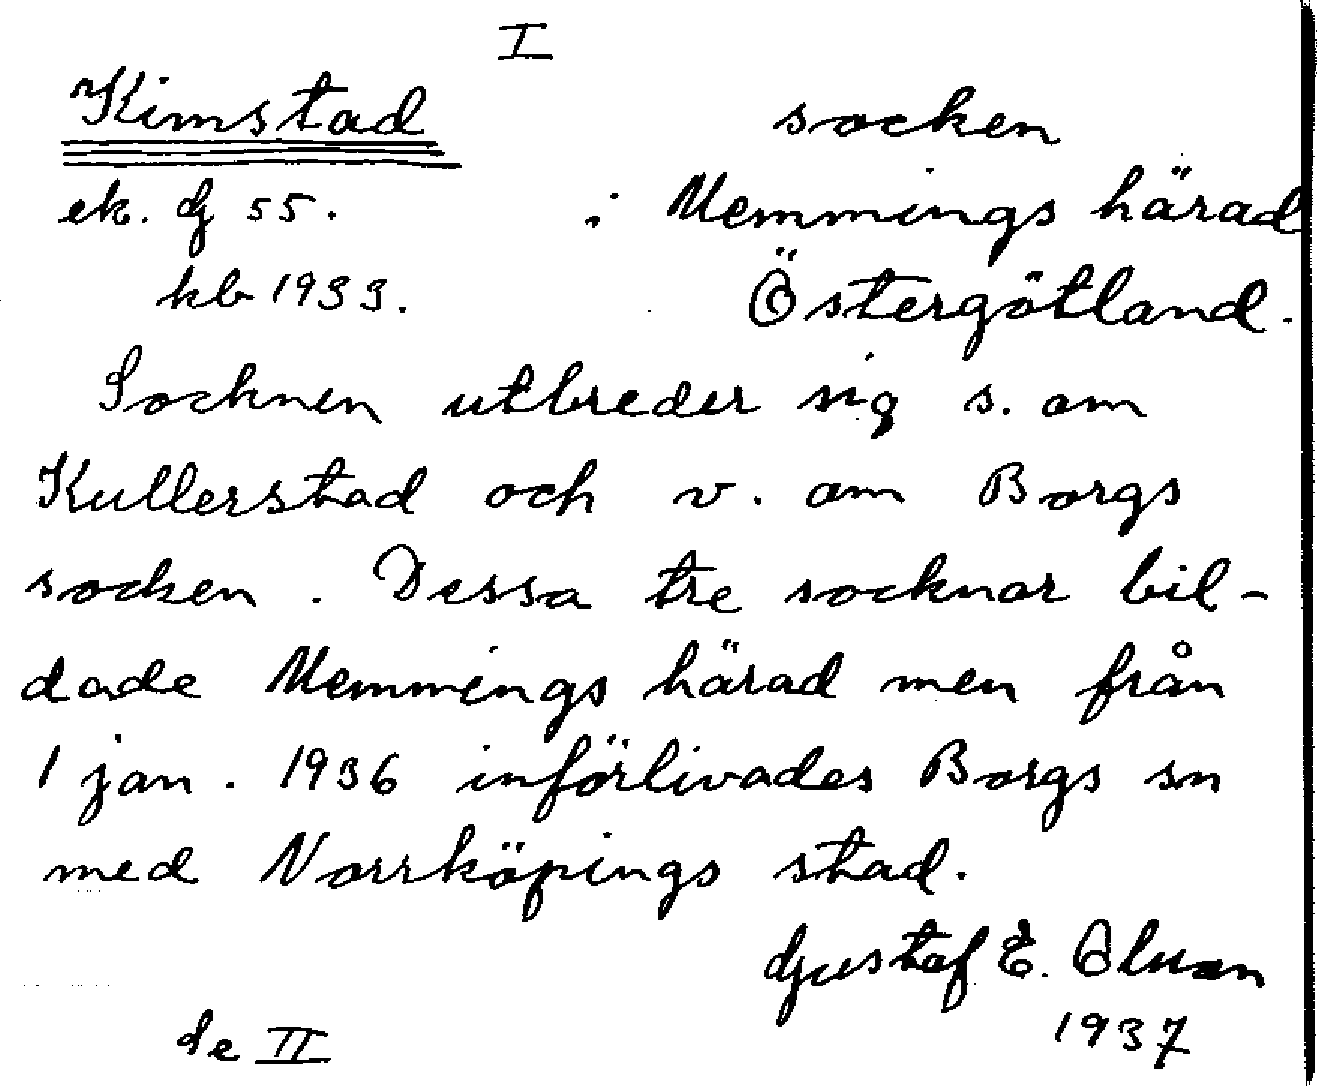 I
Kimstad socken
ek. G 55. i Memmings härad
kb 1933. Östergötland.
Socknen utbreder sig s. om
Kullerstad och v. om Borgs
socken. Dessa tre socknar bil-
dade Memmings härad men från
1 jan. 1936 införlivades Borgs sn
med Norrköpings stad.
Gustaf E.
Se II 1937